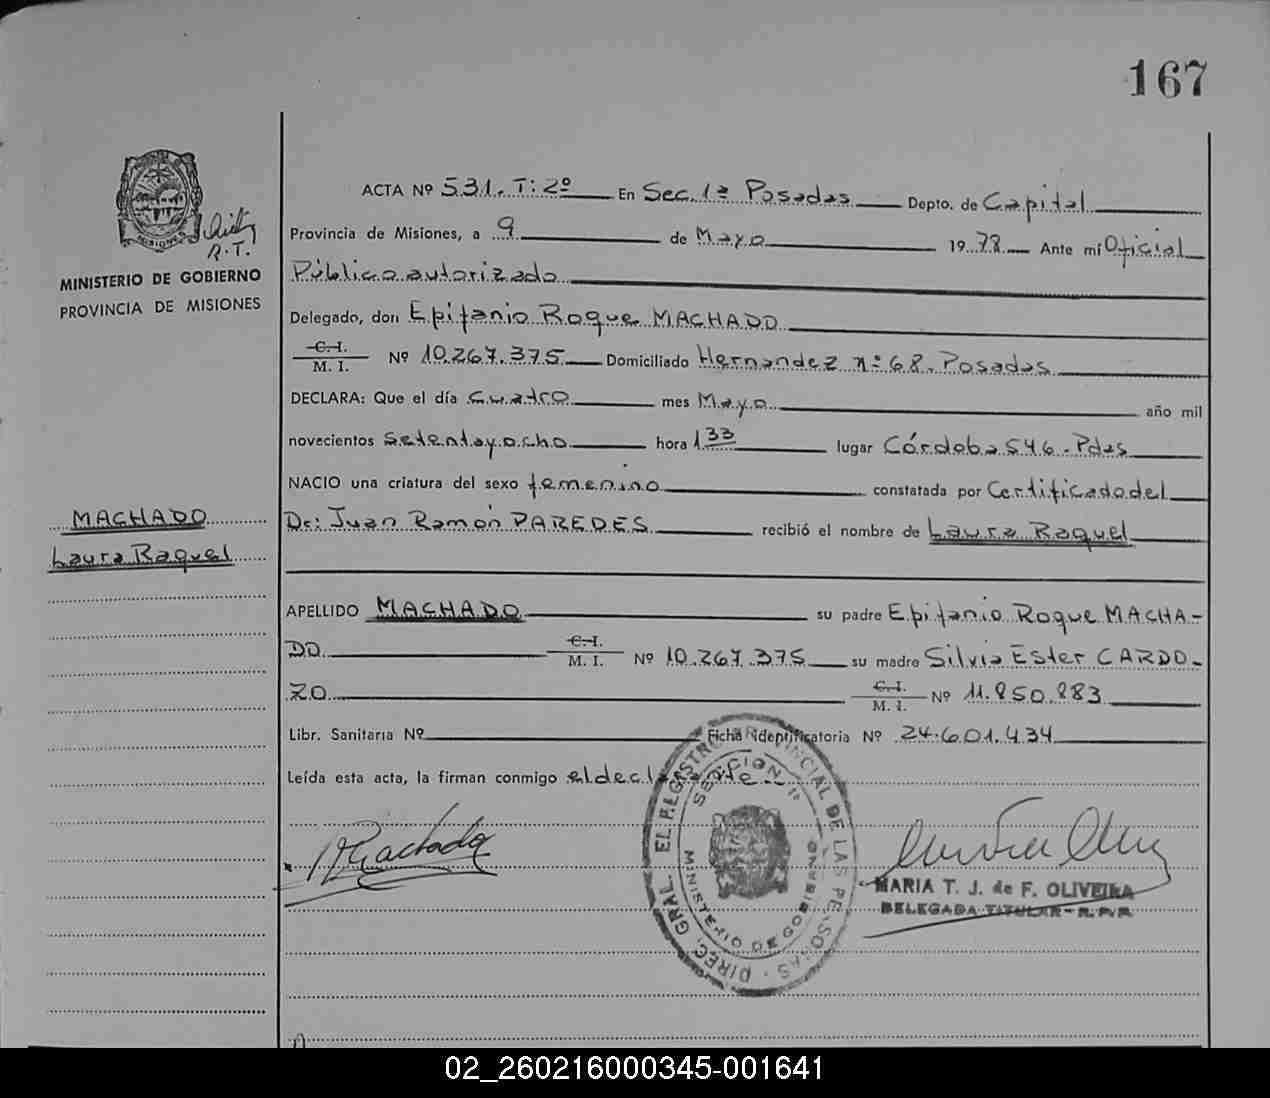 167
ACTA Nº 531. T: 2º En Sec. 1ª Posadas Depto. de Capital
Provincia de Misiones, a 9 de Mayo 1978 Ante mi Oficial
Público autorizado
R.T.
MINISTERIO DE GOBIERNO
PROVINCIA DE MISIONES
Delegado, don Epifanio Roque MACHADO
C. I.
M. I. Nº 10.267.375 Domiciliado Hernandez nº 68. Posadas
DECLARA: Que el día cuatro mes Mayo año mil
novecientos setentayocho hora 1 33 lugar Córdoba 546. Pdas
NACIO una criatura del sexo femenino constatada por Certificado del
Dr: Juan Ramón PAREDES recibió el nombre de Laura Raquel
MACHADO
Laura Raquel
APELLIDO MACHADO su padre Epifanio Roque MACHA-
DO. C. I.
M. I. Nº 10.267.375 su madre Silvia Ester CARDO-
ZO C. I.
M. I. Nº 11.850.883
Libr. Sanitaria Nº Ficha identificatoria Nº 24.601.434
Leída esta acta, la firman conmigo el declarante
DIREC. GRAL. EL REGISTRO PROVINCIAL DE LAS PERSONAS
SECCION 1ª
MINISTERIO DE GOBIERNO
MARIA T. J. de F. OLIVEIRA
DELEGADA TITULAR - R.P.P.
02_260216000345-001641